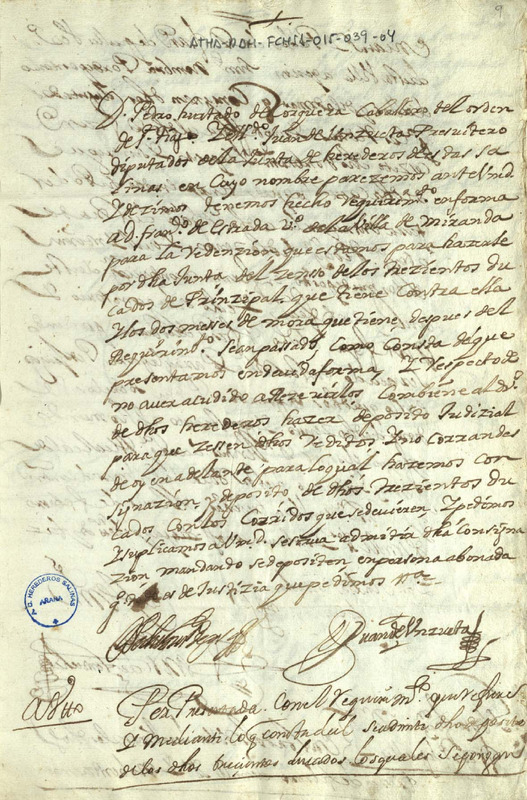 9
ATHA-DAH-FCHSA-015-039-04
D. Pedro hurtado de Corquera Cavallero del orden
de s.tiago. Y el Ldo. Juan de Unzueta Presvitero
diputados de la Junta de herederos destas sa
linas en Cuyo nombre parezemos ante Vmd
Y dezimos tenemos hecho requirimto. en forma
a D. franco. de Estrada vo. de la Villa de miranda
para la redenzion que estamos para hazerle
por dha Junta del zenso de los trezientos du
cados de Prinzipal que tiene contra ella
Y los dos meses de mora que tiene despues del
Requirimto. sean passados como consta del que
presentamos en devida forma, Y respecto de
no aver acudido a Rezevirlos combiene al dro.
de dhos herederos hazer deposito Judizial
para que zessen dhos reditos Y no corran des
de oy en adelante para lo qual hazemos con
signazion y deposito de dhos trezientos du
cados con los corridos que se devieren Y pedimos
Y suplicamos a Vmd. se sirva admitir dha Consigna
zion mandando se depositen en persona abonada
q. es de Justizia que pedimos
N.D. HEREDEROS SALINAS
ARAÑA
Juan de Unzueta
Auto
Por Presentada. Con el requirimto. que refiere
Y mediante lo q consta del se admite dho deposito
de los dhos trezientos ducados los quales se pongan